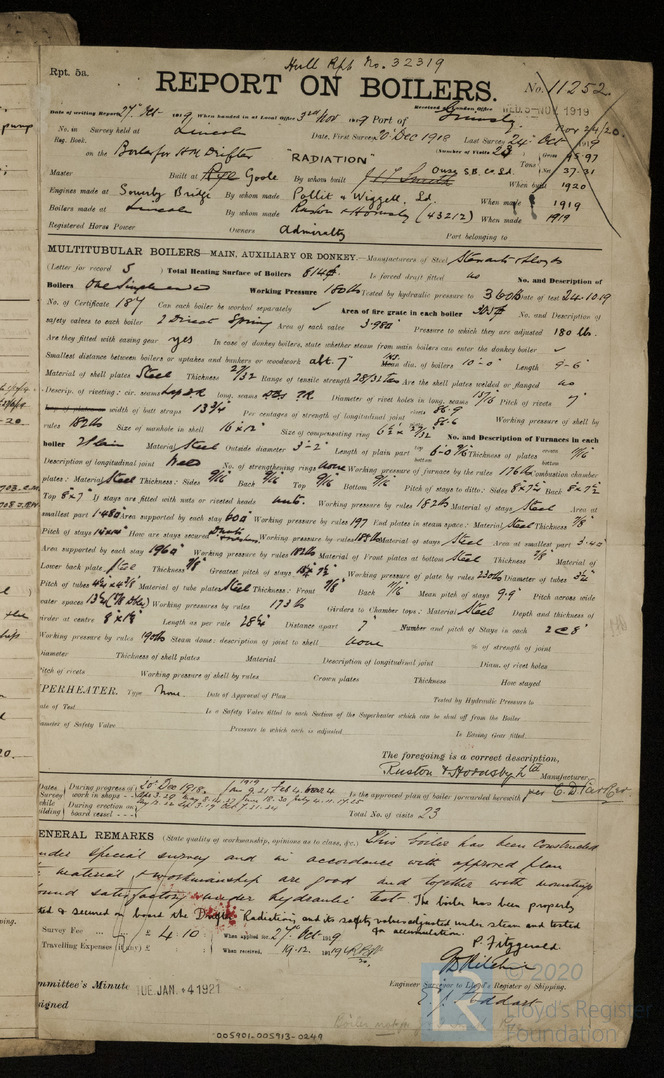 Hull Rpt No. 32319
Rpt. 5a.
REPORT ON BOILERS.
No. 11252
Received at London Office WED. 5-NOV 1919
Date of writing Report 27th Oct 1919 When handed in at Local Office 3rd Nov 1919 Port of Grimsby
No. in Survey held at Lincoln Date, First Survey 20 Dec 1918 Last Survey 24 Oct 1919
Reg. Book.
on the Boiler for H.M. Drifter "RADIATION" (Number of Visits 23) Tons Gross 95.97
Net 37.31
Master Built at Goole By whom built Ouse S.B. Co Ld. When built 1920
Engines made at Sowerby Bridge By whom made Pollit & Wigzell, Ld When made 1919
Boilers made at Lincoln By whom made Ruston & Hornsby (43212) When made 1919
Registered Horse Power Owners Admiralty Port belonging to
MULTITUBULAR BOILERS—MAIN, AUXILIARY OR DONKEY.—Manufacturers of Steel Stewarts & Lloyds
(Letter for record S) Total Heating Surface of Boilers 814 Is forced draft fitted no No. and Description of
Boilers One Single ended Working Pressure 180 lbs Tested by hydraulic pressure to 360 lbs Date of test 24.10.19
No. of Certificate 187 Can each boiler be worked separately ✓ Area of fire grate in each boiler No. and Description of
safety valves to each boiler 2 Direct Spring Area of each valve 3.98 Pressure to which they are adjusted 180 lbs.
Are they fitted with easing gear yes In case of donkey boilers, state whether steam from main boilers can enter the donkey boiler ✓
Smallest distance between boilers or uptakes and bunkers or woodwork abt. 7" dia. of boilers 10-0 Length 9-6
Material of shell plates Steel Thickness 27/32 Range of tensile strength 28/32 tons Are the shell plates welded or flanged no
Descrip. of riveting: cir. seams long. seams Diameter of rivet holes in long. seams 15/16 Pitch of rivets 7"
width of butt straps 13¾ Per centages of strength of longitudinal joint rivets 86.9 Working pressure of shell by
plate 86.6
rules 182 lbs Size of manhole in shell 16 x 12 Size of compensating ring No. and Description of Furnaces in each
boiler 2 Plain Material Steel Outside diameter 3-2" Length of plain part 6-0 Thickness of plates 11/16
Description of longitudinal joint Weld No. of strengthening rings none Working pressure of furnace by the rules 176 lbs Combustion chamber
plates: Material Steel Thickness: Sides 9/16 Back 9/16 Top 9/16 Bottom 9/16 Pitch of stays to ditto: Sides Back
Top 8 x 7 If stays are fitted with nuts or riveted heads nuts. Working pressure by rules 182 lbs Material of stays Steel Area at
smallest part 1.48 Area supported by each stay 60 Working pressure by rules 197 End plates in steam space: Material Steel Thickness 7/8
Pitch of stays How are stays secured Working pressure by rules Material of stays Steel Area at smallest part
Area supported by each stay 196 Working pressure by rules 182 lbs Material of Front plates at bottom Steel Thickness 7/8 Material of
Lower back plate Steel Thickness 7/8 Greatest pitch of stays Working pressure of plate by rules 230 lbs Diameter of tubes 3½
Pitch of tubes Material of tube plates Steel Thickness: Front 7/8 Back 11/16 Mean pitch of stays 9.9 Pitch across wide
water spaces 13½ Working pressures by rules 173 lbs Girders to Chamber tops: Material Steel Depth and thickness of
girder at centre Length as per rule 28¼ Distance apart 7" Number and pitch of Stays in each 2 @ 8"
Working pressure by rules 190 lbs Steam dome: description of joint to shell none % of strength of joint
Diameter Thickness of shell plates Material Description of longitudinal joint Diam. of rivet holes
Pitch of rivets Working pressure of shell by rules Crown plates Thickness How stayed
SUPERHEATER. Type None Date of Approval of Plan Tested by Hydraulic Pressure to
Date of Test Is a Safety Valve fitted to each Section of the Superheater which can be shut off from the Boiler
Diameter of Safety Valve Pressure to which each is adjusted Is Easing Gear fitted
The foregoing is a correct description,
Ruston & Hornsby Ltd Manufacturer.
Dates of Survey while building During progress of work in shops - - 20 Dec 1918
During erection on board vessel - - -
Is the approved plan of boiler forwarded herewith
Total No. of visits 23
GENERAL REMARKS (State quality of workmanship, opinions as to class, &c.) This boiler has been constructed
under special survey and in accordance with approved plan
material & workmanship are good and together with mountings
found satisfactory under hydraulic test. The boiler has been properly
fitted & secured on board the Drifter Radiation, and its safety valves adjusted under steam and tested
for accumulation.
P. Fitzgerald.
Survey Fee £ 4 : 10 When applied for, 27th Oct 1919
Travelling Expenses (if any) £ When received, 19.12. 1919
Engineer Surveyor to Lloyd's Register of Shipping.
Committee's Minute TUE. JAN. -4 1921
Assigned
© 2020
Lloyd's Register
Foundation
005901-005913-0249